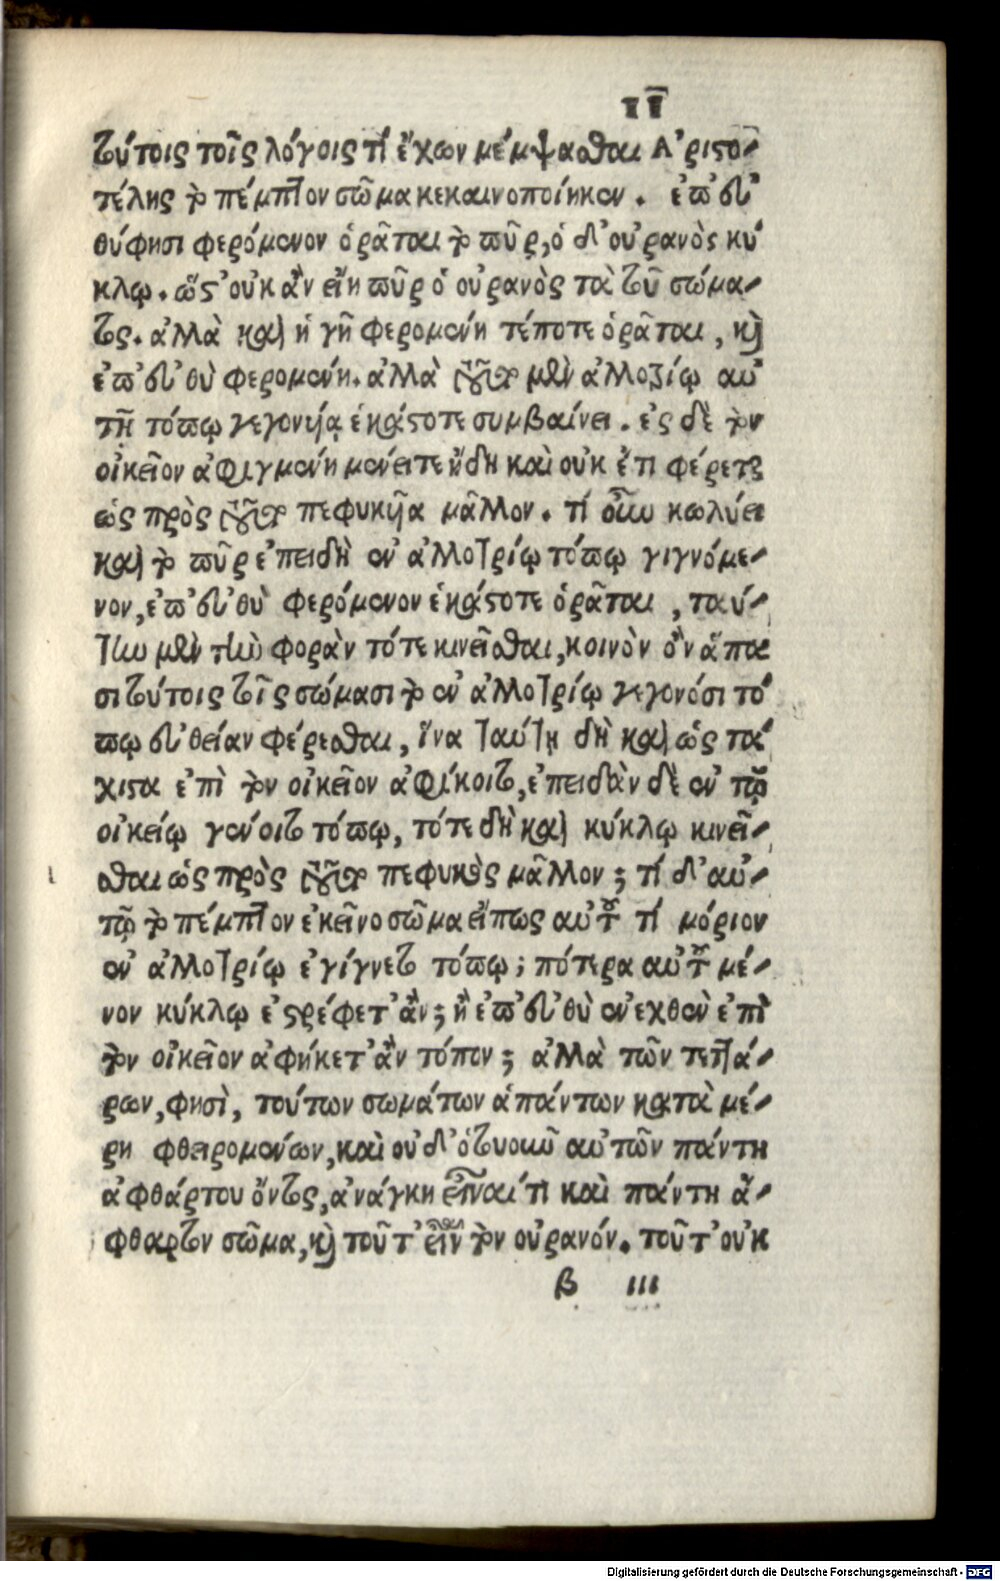 ιι
τούτοις τοῖς λόγοις τί ἔχων μέμψασθαι Ἀριστο-
τέλης τὸ πέμπτον σῶμα κεκαινοποίηκεν. ἐπ’ εὐ
θύ φησι φερόμενον ὁρᾶται τὸ πῦρ, ὁ δ’ οὐρανὸς κύ
κλῳ. ὥστ’ οὐκ ἂν εἴη πῦρ ὁ οὐρανὸς τὰ τοῦ σώμα-
τος. ἀλλὰ καὶ ἡ γῆ φερομένη τέποτε ὁρᾶται, καὶ
ἐπ’ εὐθὺ φερομένη. ἀλλὰ τοῦτο μὲν ἀλλοτρίῳ αὐ
τῇ τόπῳ γεγονυίᾳ ἑκάστοτε συμβαίνει. ἐς δὲ τὸν
οἰκεῖον ἀφιγμένη μένει τε ἤδη καὶ οὐκ ἔτι φέρεται
ὡς πρὸς τοῦτο πεφυκυῖα μᾶλλον. τί οὖν κωλύει
καὶ τὸ πῦρ ἐπειδὴ ἐν ἀλλοτρίῳ τόπῳ γιγνόμε-
νον, ἐπ’ εὐθὺ φερόμενον ἑκάστοτε ὁρᾶται, ταύ-
την μὲν τὴν φορὰν τότε κινεῖσθαι, κοινὸν ὂν ἅπα
σι τούτοις τοῖς σώμασι τὸ ἐν ἀλλοτρίῳ γεγονόσι τό
πῳ εὐθείαν φέρεσθαι, ἵνα ταύτῃ δὴ καὶ ὡς τά
χιστα ἐπὶ τὸν οἰκεῖον ἀφίκοιτο, ἐπειδὰν δὲ ἐν τῷ
οἰκείῳ γένοιτο τόπῳ, τότε δὴ καὶ κύκλῳ κινεῖ-
σθαι ὡς πρὸς τοῦτο πεφυκὸς μᾶλλον; τί δ’ αὐ-
τῷ τὸ πέμπτον ἐκεῖνο σῶμα εἴ πως αὐτοῦ τί μόριον
ἐν ἀλλοτρίῳ ἐγίγνετο τόπῳ; πότερα αὐτοῦ μέ-
νον κύκλῳ ἐστρέφετ’ ἄν; ἢ ἐπ’ εὐθὺ ἐνεχθὲν ἐπὶ
τὸν οἰκεῖον ἀφήκετ’ ἂν τόπον; ἀλλὰ τῶν τεττά-
ρων, φησὶ, τούτων σωμάτων ἁπάντων κατὰ μέ-
ρη φθειρομένων, καὶ οὐδ’ ὁτουοῦν αὐτῶν πάντη
ἀφθάρτου ὄντος, ἀνάγκη εἶναί τι καὶ πάντη ἄ-
φθαρτον σῶμα, καὶ τοῦτ’ εἶναι τὸν οὐρανόν. τοῦτ’ οὐκ
β ιιι
Digitalisierung gefördert durch die Deutsche Forschungsgemeinschaft - DFG